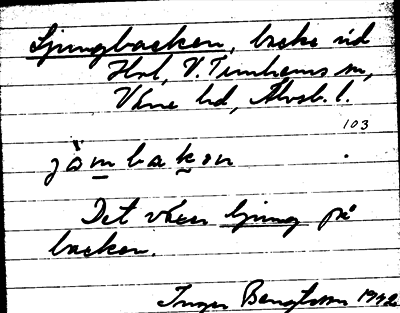 Ljungbacken, backe vid
Hol, V. Tunhems sn,
Väne hd, Älvsb. l.
103
jò̀m bakən
Det växer ljung på
backen.
Inger Bengtsson 1942